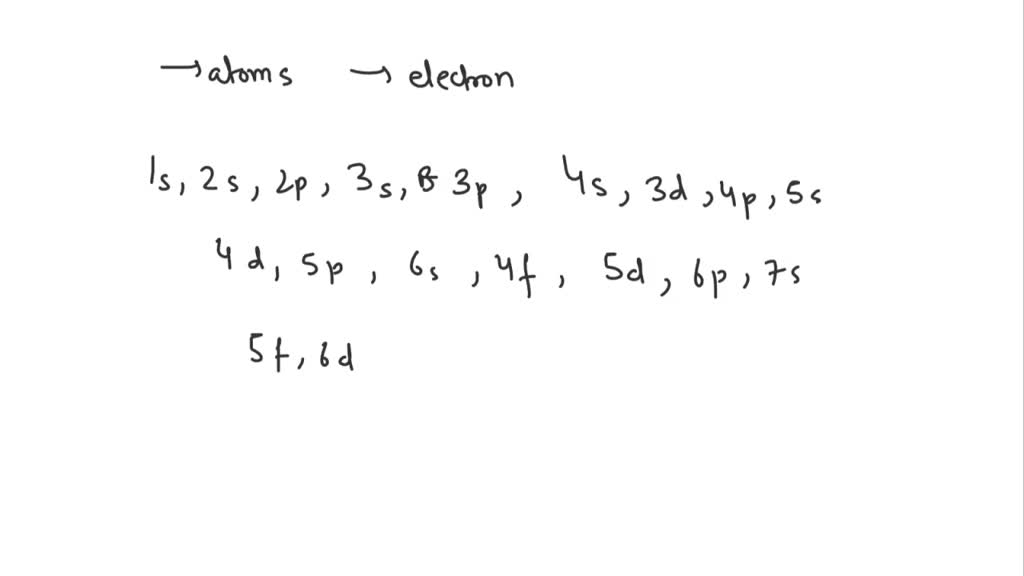 → atoms → electron
1s, 2s, 2p, 3s, 3p, 4s, 3d, 4p, 5s
4d, 5p, 6s, 4f, 5d, 6p, 7s
5f, 6d